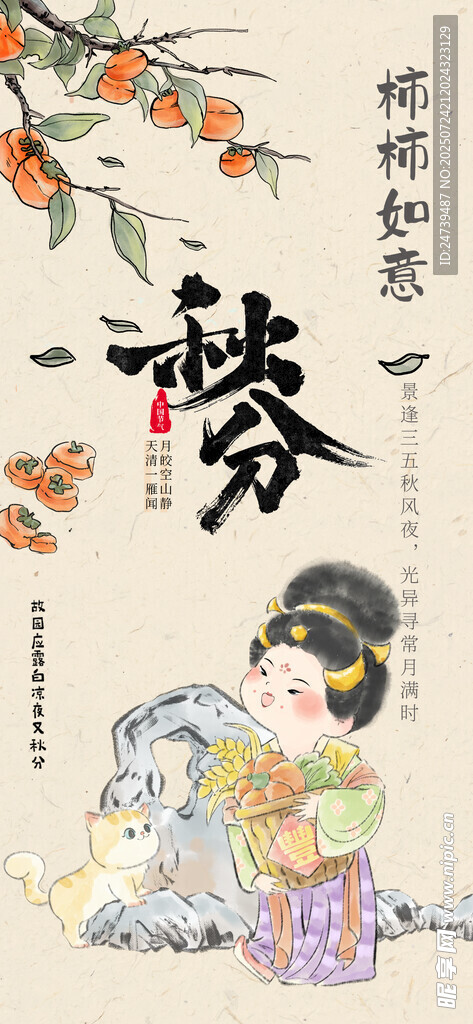 柿柿如意
秋分
中国节气
月皎空山静
天清一雁闻
景逢三五秋风夜，光异寻常月满时
故园应露白凉夜又秋分
豐
ID:24739487 NO:20250724212024323129
昵享网 www.nipic.cn